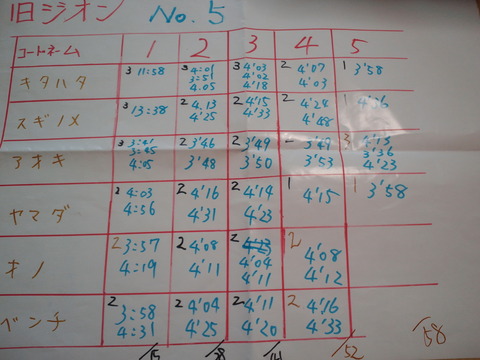 旧ジオン No.5
コートネーム 1 2 3 4 5
キタハタ 3 11:58 3 4:01 3:51 4.05 3 4'03 4'02 4'18 2 4'07 4'03 1 3'58
スギノメ 3 13:38 2 4.13 4'25 2 4'15 4'33 2 4'24 4'48 1
アオキ 3 3:45 4:05 2 3'46 3'48 2 3'49 3'50 3'49 3'53 4'13 3'36 4'23
ヤマダ 2 4:03 4:36 2 4'16 4'31 2 4'14 4'23 1 4'15 1 3'58
キノ 2 3:37 4:19 2 4'08 4'11 2 4'04 4'11 2 4'08 4'12
ベンチ 2 3:58 4:31 2 4'04 4'25 2 4'11 4'20 2 4'16 4'33
/52 /58